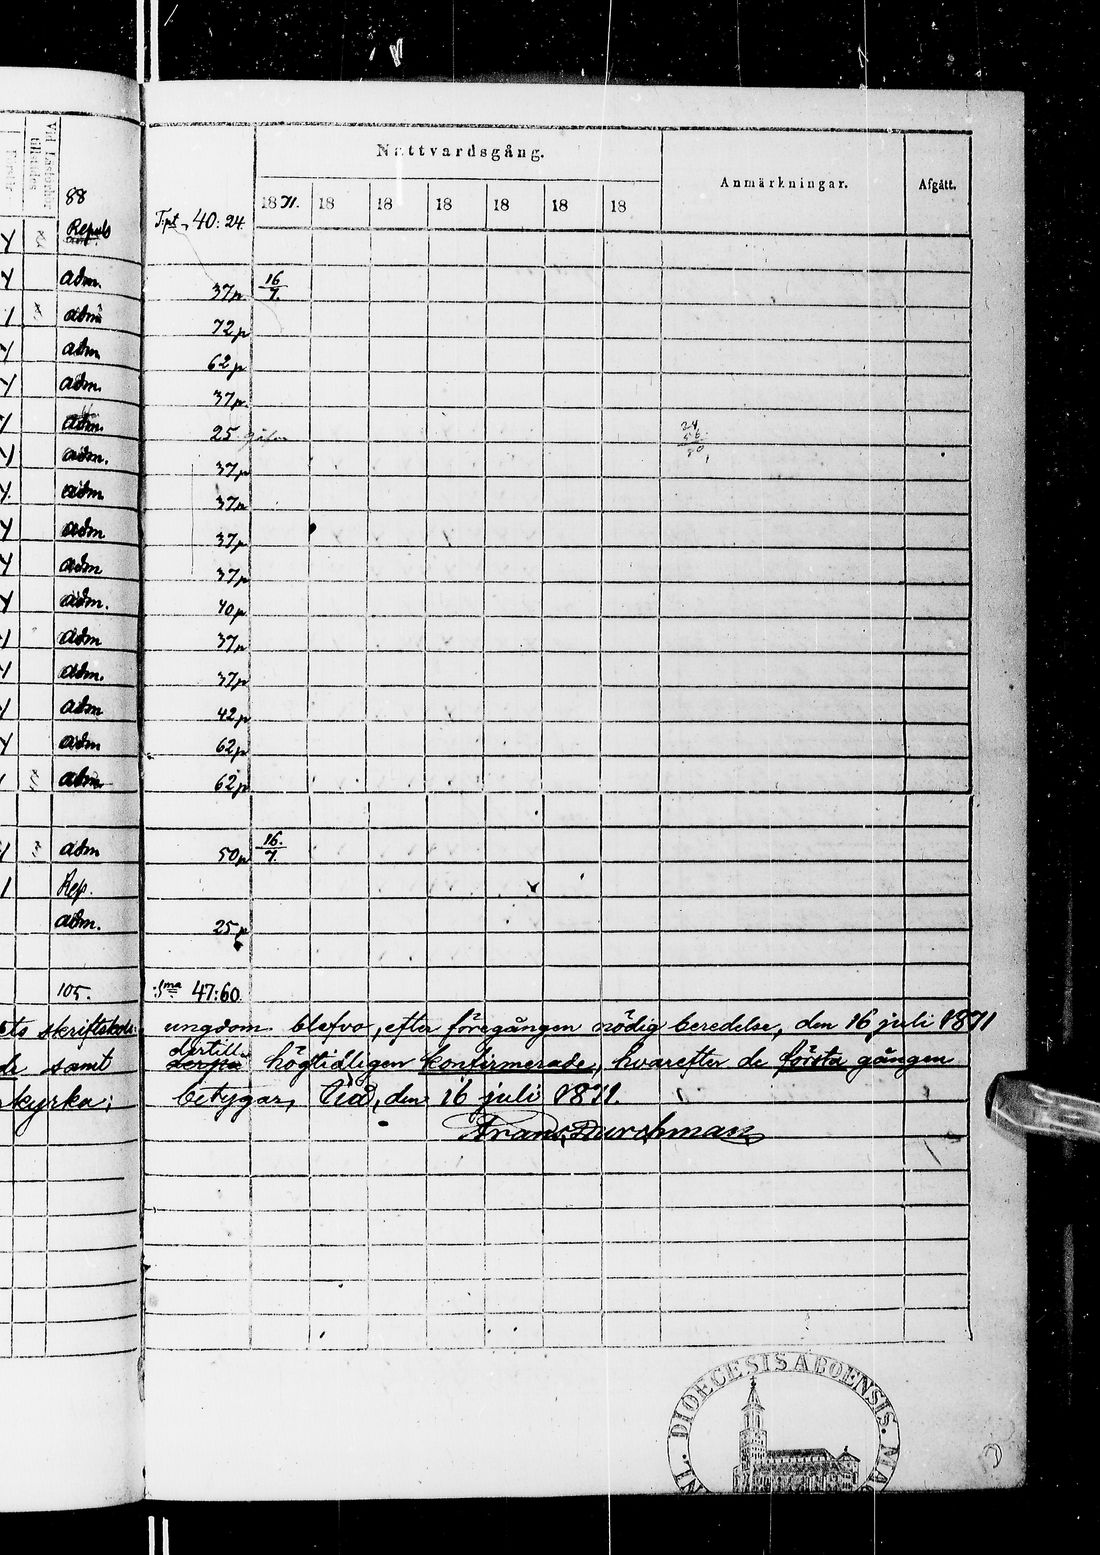 Nattvardsgång.
Anmärkningar.
Afgått.
88
1871. 18 18 18 18 18 18
T:pt 40: 24.
Y Repuls
Y adm. 37p 16/7.
1 adm 72p
Y adm 62p
Y adm. 37p
Y adm. 25
24
Y adm. 37p
Y. adm 37p
Y adm 37p
Y adm 37p
Y adm. 40p
1 adm 37p
Y adm. 37p
Y adm 42p
Y adm 62p
1 adm 62p
1 adm 50p 16./7.
1 Rep.
adm. 25p
105. S:ma 47:60.
skriftskole- ungdom blefvo, efter föregången nödig beredelse, den 16 juli 1871
dertill
samt derpå högtidligen konfirmerade, hvarefter de första gången
kyrka; betygar, Uid, den 16 juli 1871.
Frans Durchman
DIOECESIS ABOENSIS. MA